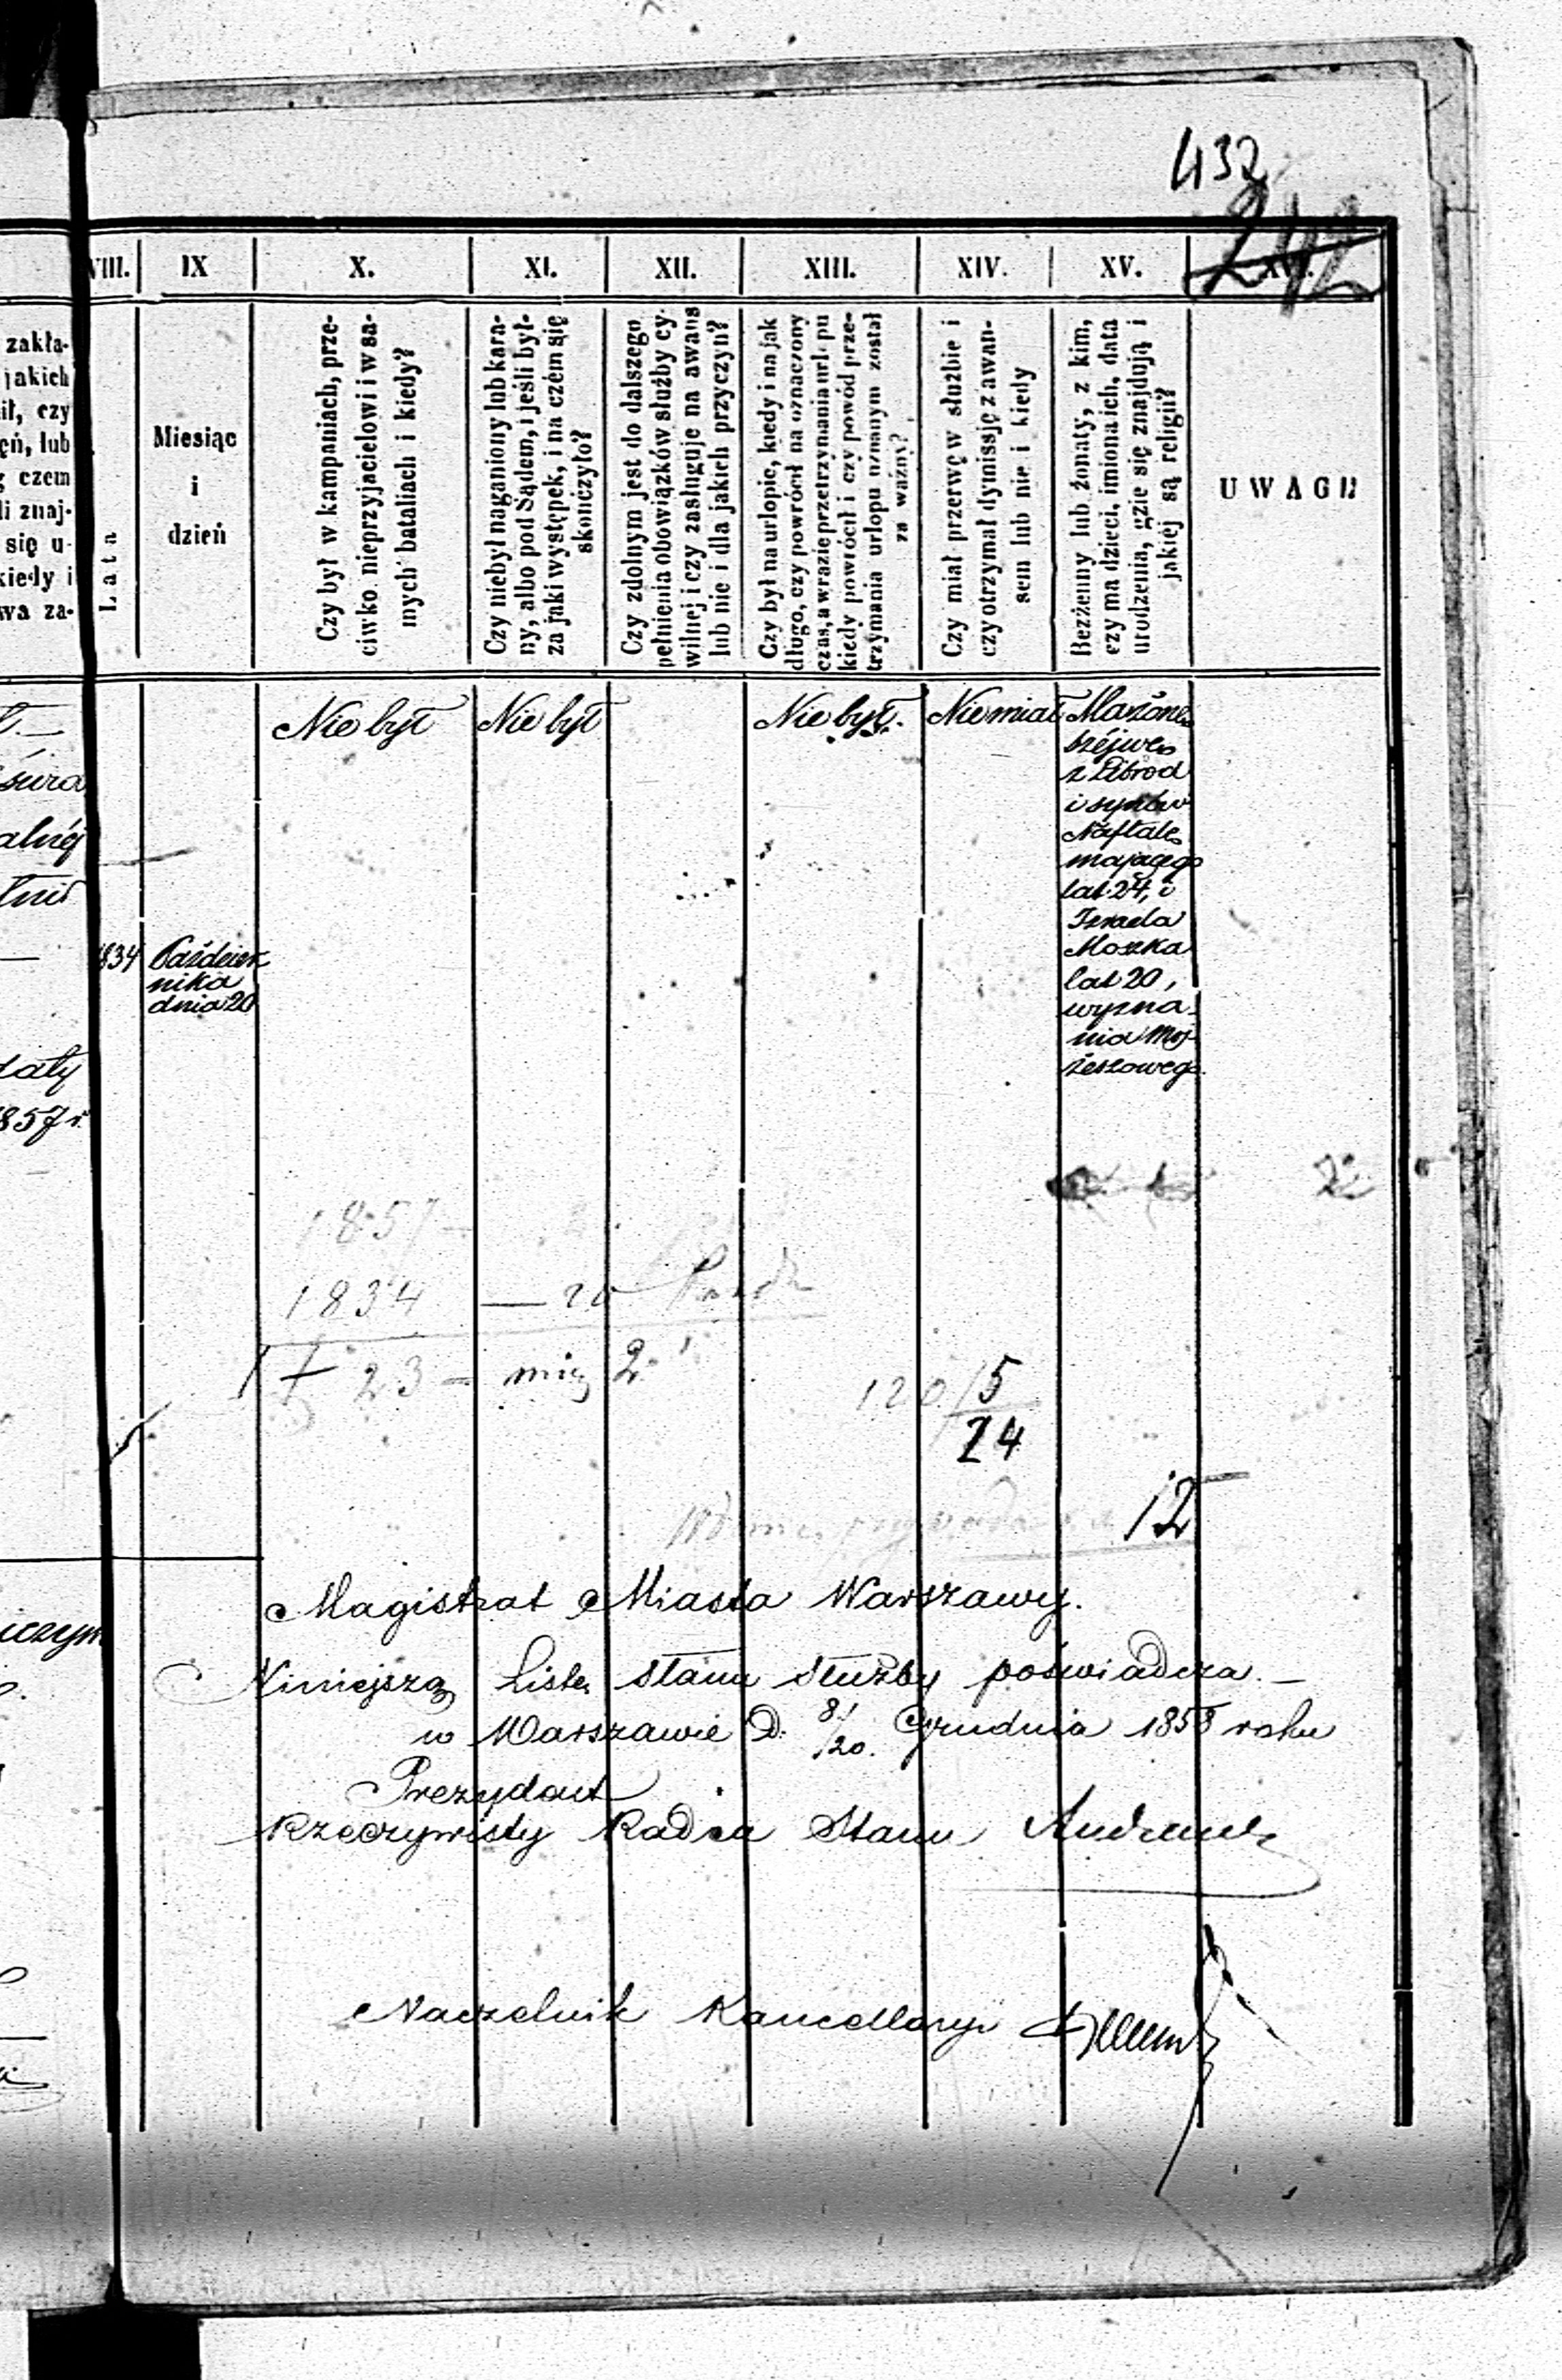 432
242
VIII.
IX
X.
XI.
XII.
XIII.
XIV.
XV.
XVI.
zakła-
jakich
ił, czy
ęń, lub
czem
li znaj-
się u-
kiedy i
wa za-
Lata
Miesiąc
i
dzień
Czy był w kampaniach, prze-
ciwko nieprzyjacielowi i w sa-
mych bataliach i kiedy?
Czy niebył naganiony lub kara-
ny, albo pod Sądem, i jeśli był-
za jaki występek, i na czém się
skończyło?
Czy zdolnym jest do dalszego
pełnienia obowiązków służby cy-
wilnej i czy zasługuje na awans
lub nie i dla jakich przyczyn?
Czy był na urlopie, kiedy i na jak
długo, czy powrócił na oznaczony
czas, a w razie przetrzymania urlopu
kiedy powrócił i czy powód prze-
trzymania urlopu uznanym został
za ważny?
Czy miał przerwę w służbie i
czy otrzymał dymissję z awan-
sem lub nie i kiedy
Bezżenny lub żonaty, z kim,
czy ma dzieci, imiona ich, data
urodzenia, gdzie się znajdują, i
jakiéj są religii?
UWAGI
Nie był
Nie był
Nie był.
Nie miał
Ma żonę
Szejwę
z Librod
i synów
Naftalę
mającego
lat 24, i
Izraela
Moszka
lat 20,
wyzna-
nia Moj-
żeszowego.
alnéj
1834
Paździer
nika
dnia 20
1857 r.
1857
1834 — 20 Paźdz
23 – mię 2
120/5
24
12
Magistrat Miasta Warszawy.
Niniejszą Listę stanu służby poświadcza. —
w Warszawie D. 8/20. Grudnia 1858 roku
Prezydent
Rzeczywisty Radca Stanu
Naczelnik Kancellaryi